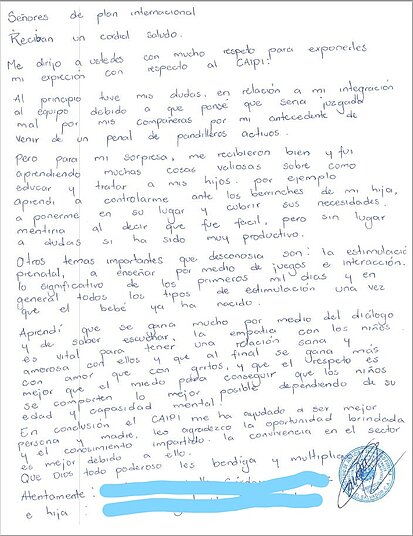 Señores de plan internacional
Reciban un cordial saludo.
Me dirijo a ustedes con mucho respeto para exponerles
mi expicción con respecto al CAIPI:
Al principio tuve mis dudas, en relación a mi integración
al equipo debido a que pensé que seria juzgada
mal por mis compañeras por mi antecedente de
venir de un penal de pandilleros activos.
Pero para mi sorpresa, me recibieron bien y fui
aprendiendo muchas cosas valiosas sobre como
educar y tratar a mis hijos. por ejemplo
aprendi a controlarme ante los berrinches de mi hija,
a ponerme en su lugar y cubrir sus necesidades.
mentiria al decir que fue facil, pero sin lugar
a dudas si ha sido muy productivo.
Otros temas importantes que desconosia son: la estimulació
prenatal, a enseñar por medio de juegos e interacción.
lo significativo de los primeros mil dias y en
general todos los tipos de estimulación una vez
que el bebé ya ha nacido.
Aprendí que se gana mucho por medio del diálogo
y de saber escuchar, la empatia con los niños
es vital para tener una relación sana y
amorosa con ellos y que al final se gana más
con amor que con gritos, y que el respeto es
mejor que el miedo para conseguir que los niños
se comporten lo mejor posible dependiendo de su
edad y capasidad mental.
En conclusión el CAIPI me ha ayudado a ser mejor
persona y madre, les agradezco la oportunidad brindada
y el conocimiento impartido. la convivencia en el sector
es mejor debido a ello.
Que Dios todo poderoso les bendiga y multipliq
Atentamente:
e hija: